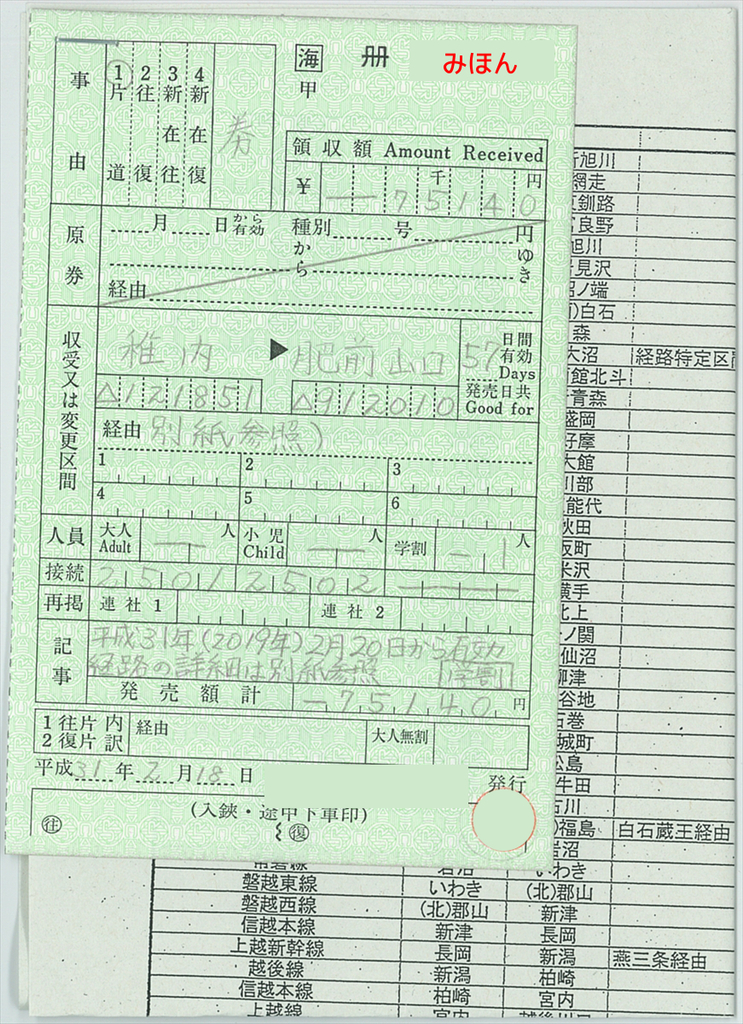 海 冊 みほん
甲
事由
1片道
2往復
3新在往
4新在復
券
領収額 Amount Received
¥ 千 円
— 75140
原券
月 日から有効 種別 号 円
から ゆき
経由
収受又は変更区間
稚内 ▶ 肥前山口
57日間有効 Days
発売日共 Good for
△121851 △912010
経由 別紙参照)
1 2 3
4 5 6
人員 大人 Adult — 人 小児 Child — 人 学割 - 1 人
接続 2501 2502 ————
再掲 連社1 連社2
記事
平成31年(2019年)2月20日から有効
経路の詳細は別紙参照 学割
発売額計 —75,140 円
1往片内
2復片訳
経由 大人無割
平成31年2月18日 発行
(入鋏・途中下車印)
往 復
旭川
網走
釧路
良野
旭川
見沢
ノ端
白石
森
大沼 経路特定区間
館北斗
青森
盛岡
好摩
大館
川部
能代
秋田
坂町
米沢
横手
北上
ノ関
仙沼
柳津
谷地
石巻
城町
松島
牛田
古川
)福島 白石蔵王経由
岩沼
常磐線 岩沼 いわき
磐越東線 いわき (北)郡山
磐越西線 (北)郡山 新津
信越本線 新津 長岡
上越新幹線 長岡 新潟 燕三条経由
越後線 新潟 柏崎
信越本線 柏崎 宮内
上越線 宮内 越後川口